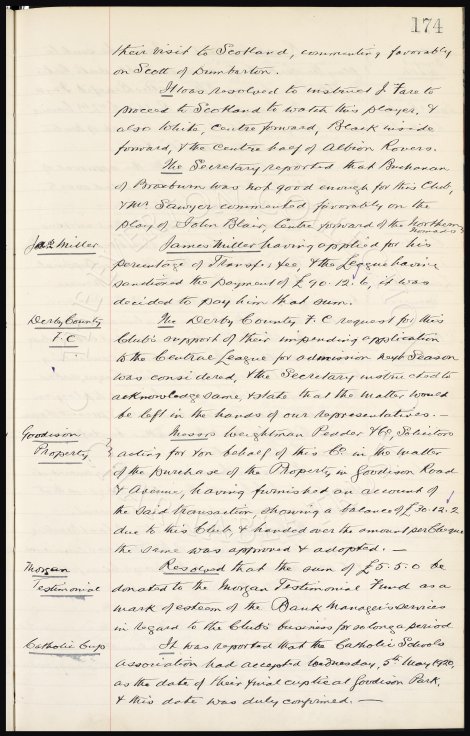 174
their visit to Scotland, commenting favorably
on Scott of Dumbarton.
It was resolved to instruct J. Fare to
proceed to Scotland to watch this player, &
also White, centre forward, Black inside
forward, & the centre half of Albion Rovers.
The Secretary reported that Buchanan
of Broxburn was not good enough for this Club,
& Mr Sawyer commented favorably on the
play of John Blair, Centre forward of the Northern
Nomads.
Jas. Miller
James Miller having applied for his
percentage of Transfer fee, & the League having
sanctioned the payment of £90.12.6, it was
decided to pay him that sum.
Derby County
F.C
The Derby County F.C request for this
Club's support of their impending application
to the Central League for admission next Season
was considered, & the Secretary instructed to
acknowledge same, & state that the matter would
be left in the hands of our representatives. —
Goodison
Property
Messrs Weightman Pedder & Co, Solicitors
acting for & on behalf of this Co in the matter
of the purchase of the Property in Goodison Road
& Avenue, having furnished an account of
the said transaction, showing a balance of £30.12.2
due to this Club, & handed over the amount per Cheque
the same was approved & adopted. —
Morgan
Testimonial
Resolved that the sum of £5.5.0 be
donated to the Morgan Testimonial Fund as a
mark of esteem of the Bank Manager's services
in regard to the Club's business for so long a period
Catholic Cup
It was reported that the Catholic Schools
Association had accepted Wednesday, 5th May 1920,
as the date of their final cuptie at Goodison Park,
& this date was duly confirmed. —